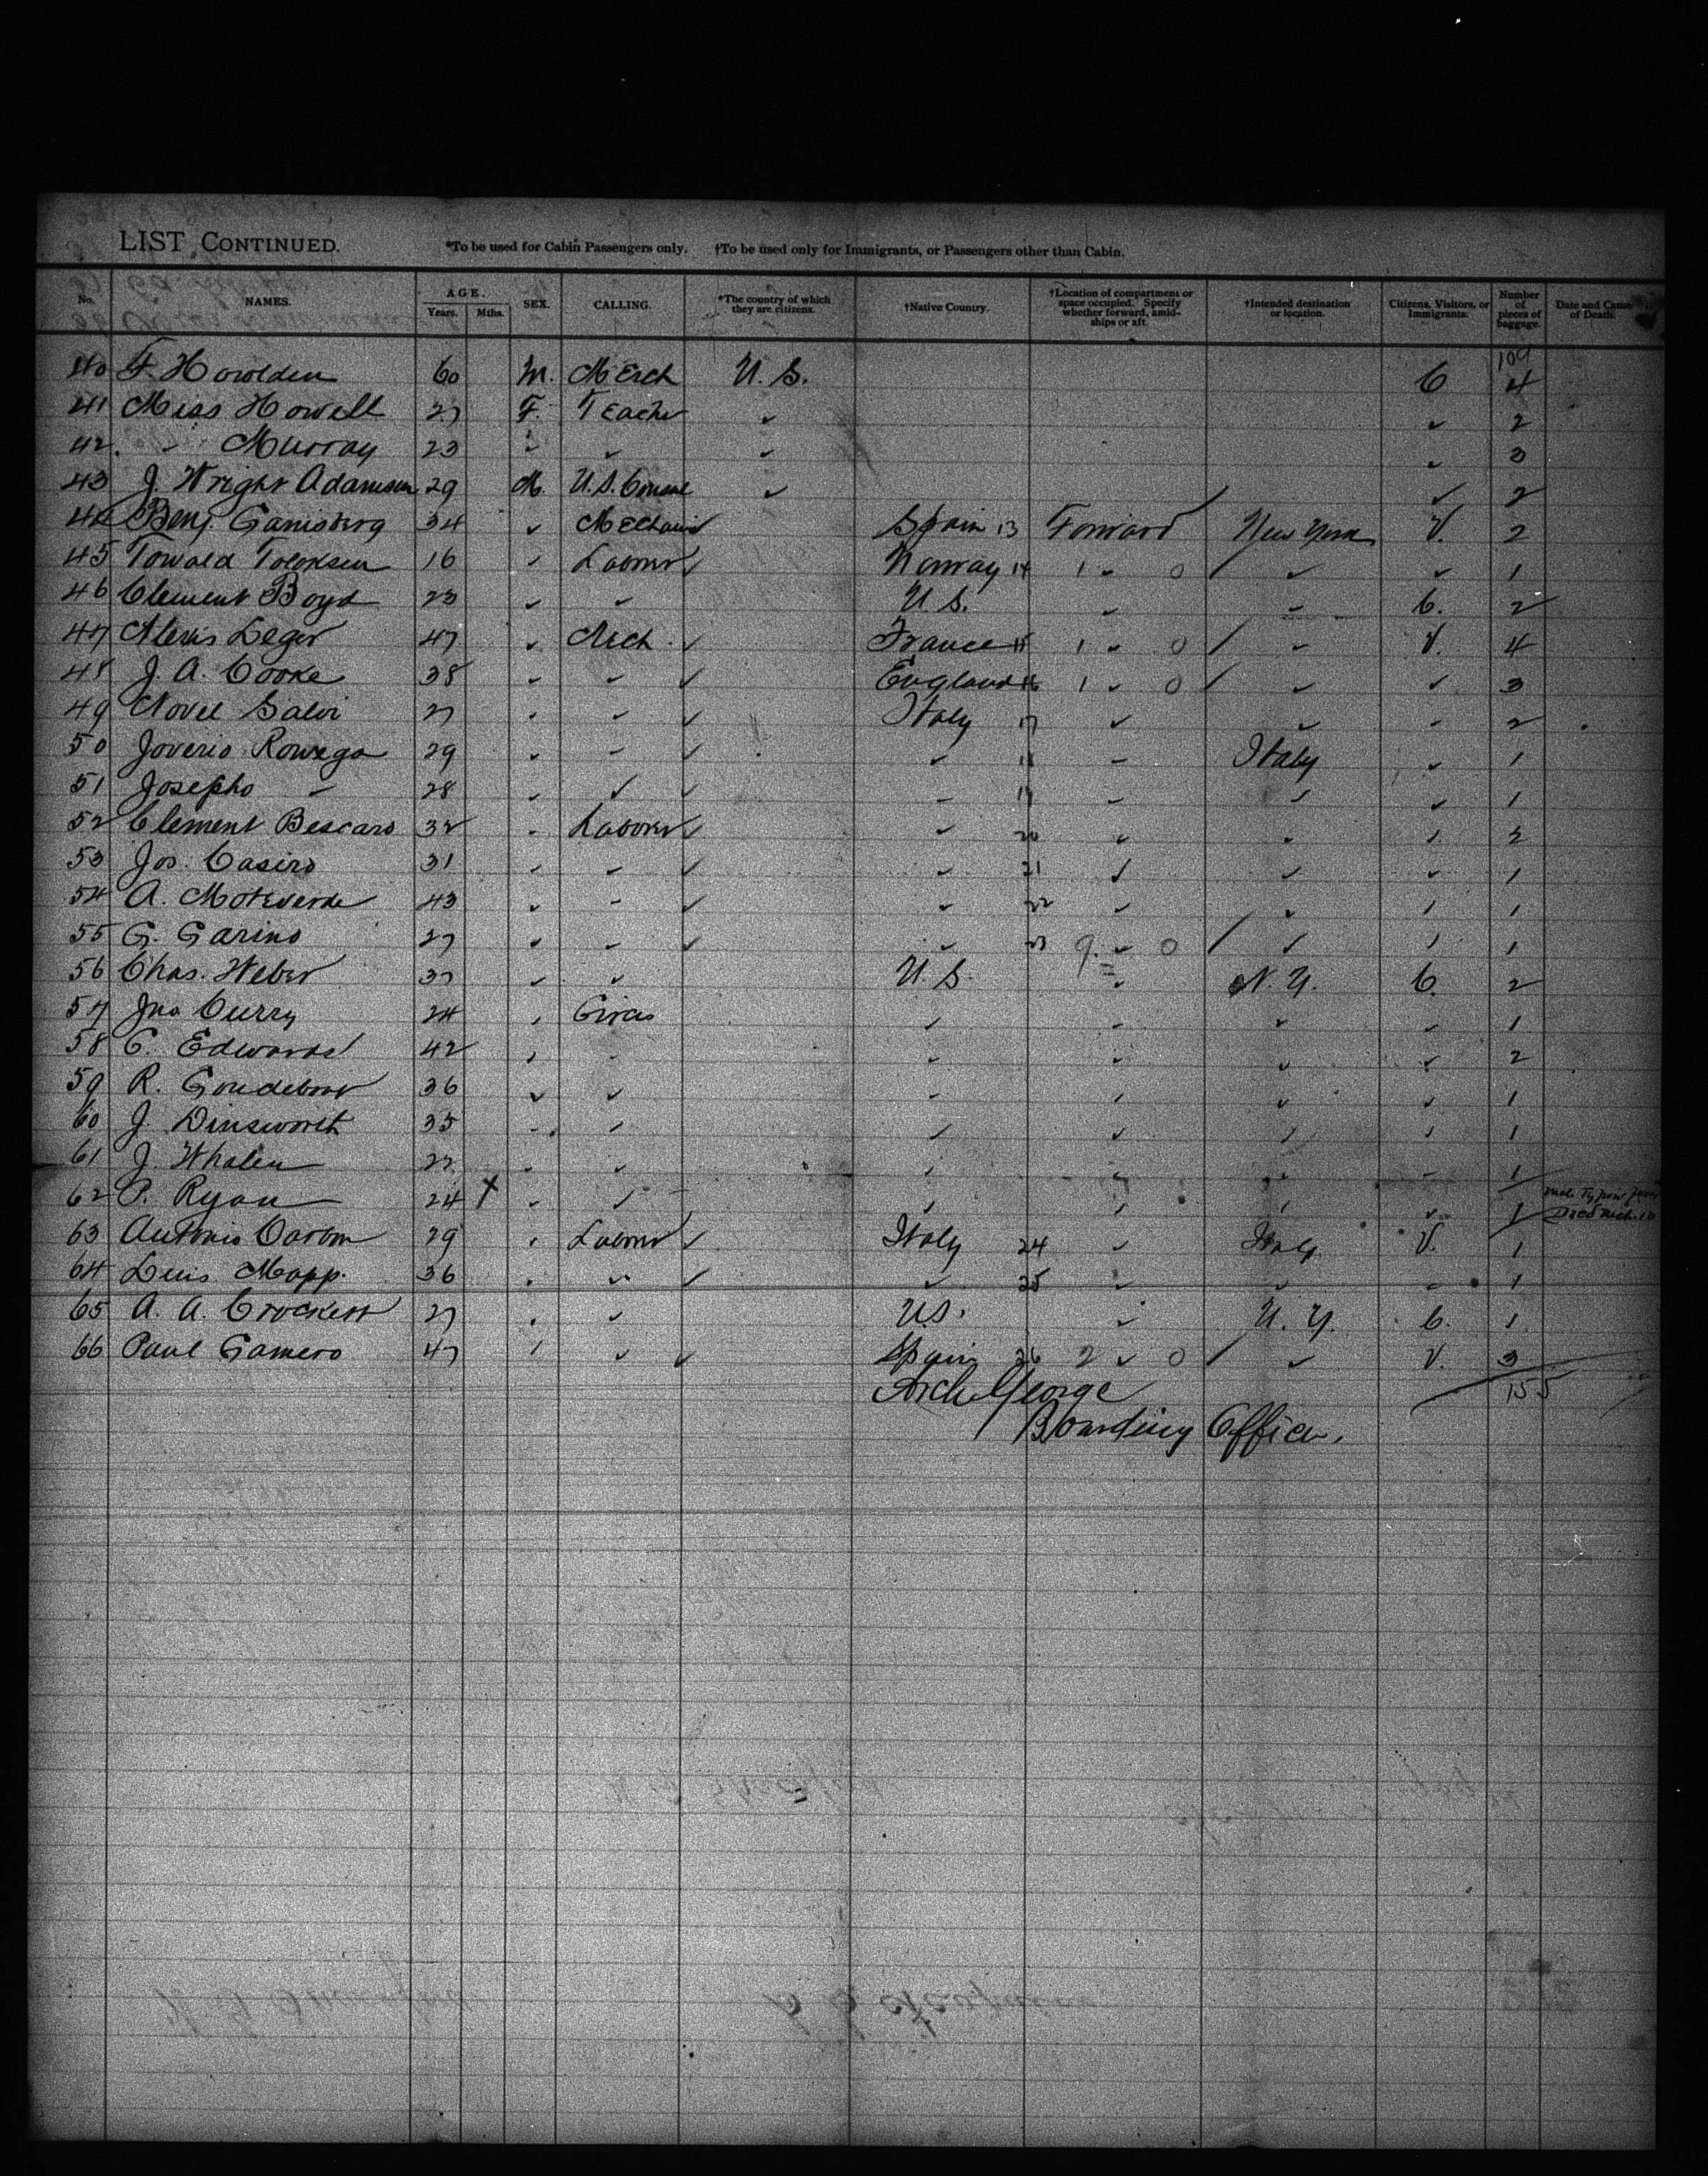 LIST CONTINUED. *To be used for Cabin Passengers only. †To be used only for Immigrants, or Passengers other than Cabin.
No. NAMES. AGE. Years. Mths. SEX. CALLING. *The country of which they are citizens. †Native Country. †Location of compartment or space occupied. Specify whether forward, amidships or aft. †Intended destination or location. Citizens, Visitors, or Immigrants. Number of pieces of baggage. Date and Cause of Death.
109
40 F. Howlden 60 M. Merch U.S. C 4
41 Miss Howell 27 F. Teacher ✓ ✓ 2
42. " Murray 23 " ✓ ✓ ✓ 3
43 J. Wright Adamson 29 M. U.S. Consul ✓ ✓ 2
44 Benj. 34 ✓ Mechanic ✓ Spain 13 Forward New York V. 2
45 Towald 16 ✓ Laborer ✓ Norway 14 1 ✓ 0 / ✓ ✓ 1
46 Clement Boyd 23 ✓ ✓ U.S. ✓ ✓ C. 2
47 Alexis Leger 47 ✓ Mech. ✓ France 15 1 ✓ 0 / ✓ V. 4
48 J. A. Cooke 38 ✓ ✓ ✓ England 16 1 ✓ 0 / ✓ ✓ 3
49 Novel Salvi 27 ✓ ✓ ✓ Italy 17 ✓ ✓ ✓ 2
50 Joverio Rowega 29 ✓ ✓ ✓ ✓ 18 ✓ Italy ✓ 1
51 Josepho " 28 ✓ ✓ ✓ ✓ 19 ✓ ✓ ✓ 1
52 Clement Bescaro 32 ✓ Laborer ✓ ✓ 20 ✓ ✓ ✓ 2
53 Jos. Casiro 31 ✓ ✓ ✓ ✓ 21 ✓ ✓ ✓ 1
54 A. Moteverde 43 ✓ ✓ ✓ ✓ 22 ✓ ✓ ✓ 1
55 G. Garino 27 ✓ ✓ ✓ ✓ 23 9. ✓ 0 / ✓ ✓ 1
56 Chas. Weber 37 ✓ ✓ U.S. ✓ N.Y. C. 2
57 Jno Curry 24 ✓ Circus ✓ ✓ ✓ ✓ 1
58 C. Edwards 42 ✓ ✓ ✓ ✓ ✓ ✓ 2
59 R. 36 ✓ ✓ ✓ ✓ ✓ ✓ 1
60 J. Dinsworth 35 ✓ ✓ ✓ ✓ ✓ ✓ 1
61 J. Whalen 22 ✓ ✓ ✓ ✓ ✓ ✓ 1
62 P. Ryan 24 X ✓ ✓ ✓ ✓ ✓ ✓ 1 Died Mch. 10
63 Antonio 29 ✓ Laborer ✓ Italy 24 ✓ Italy V. 1
64 Luis Mapp. 36 ✓ ✓ ✓ ✓ 25 ✓ ✓ ✓ 1
65 A. A. Crockett 27 ✓ ✓ U.S. ✓ N.Y. C. 1
66 Paul Gamero 47 ✓ ✓ ✓ Spain 26 2 ✓ 0 / ✓ V. 3
Arch George 155
Boarding Officer.